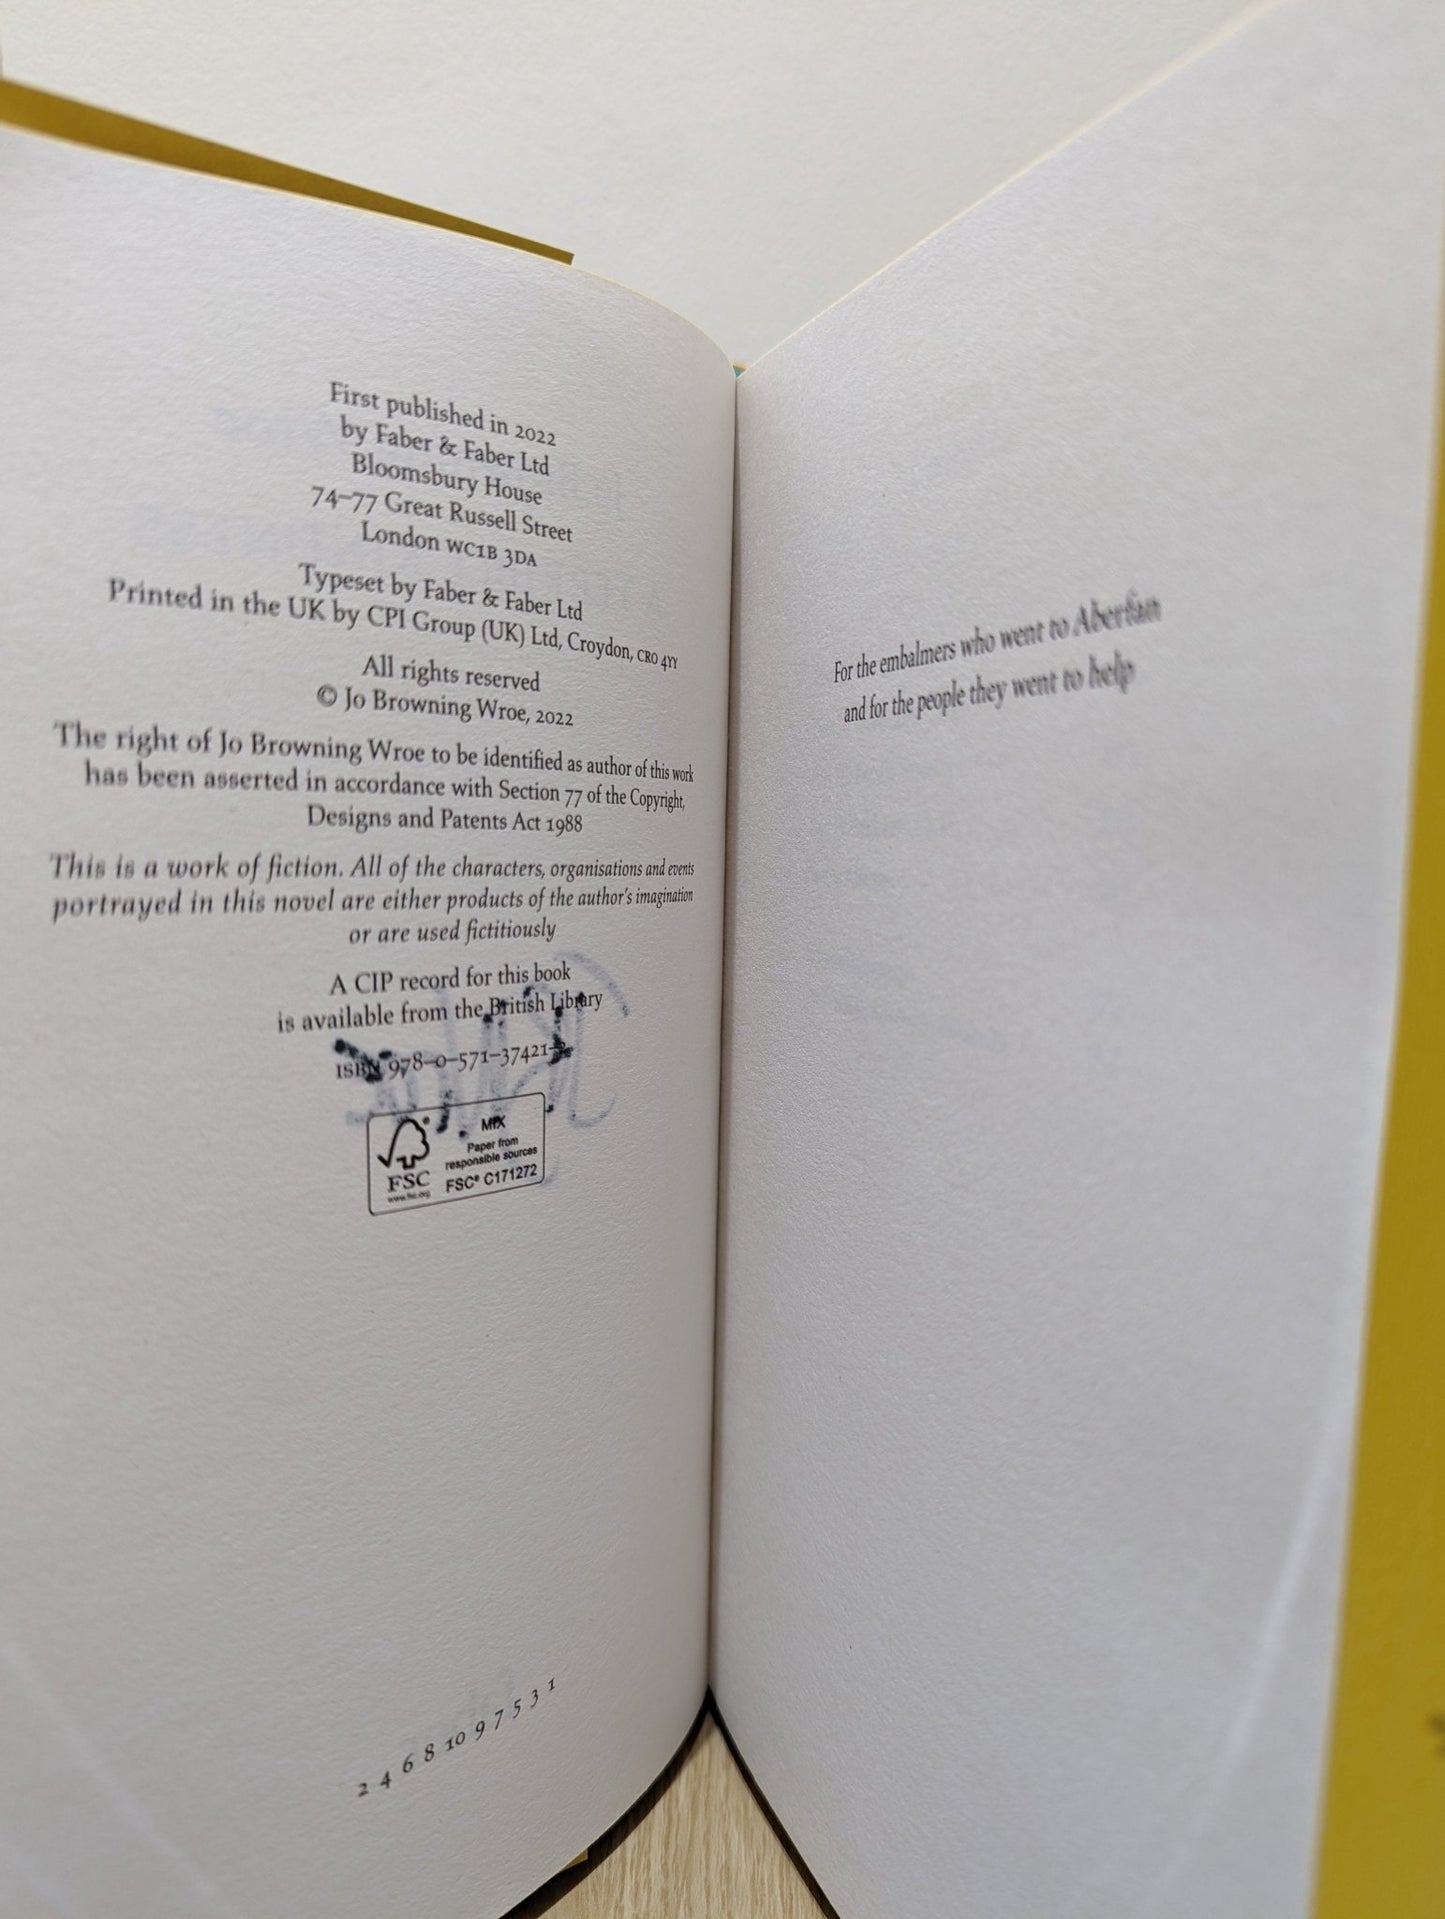 First published in 2022
by Faber & Faber Ltd
Bloomsbury House
74–77 Great Russell Street
London WC1B 3DA
Typeset by Faber & Faber Ltd
Printed in the UK by CPI Group (UK) Ltd, Croydon, CR0 4YY
All rights reserved
© Jo Browning Wroe, 2022
The right of Jo Browning Wroe to be identified as author of this work
has been asserted in accordance with Section 77 of the Copyright,
Designs and Patents Act 1988
This is a work of fiction. All of the characters, organisations and events
portrayed in this novel are either products of the author's imagination
or are used fictitiously
A CIP record for this book
is available from the British Library
ISBN 978–0–571–37421–
FSC
www.fsc.org
MIX
Paper from
responsible sources
FSC® C171272
2 4 6 8 10 9 7 5 3 1
For the embalmers who went to Aberfan
and for the people they went to help